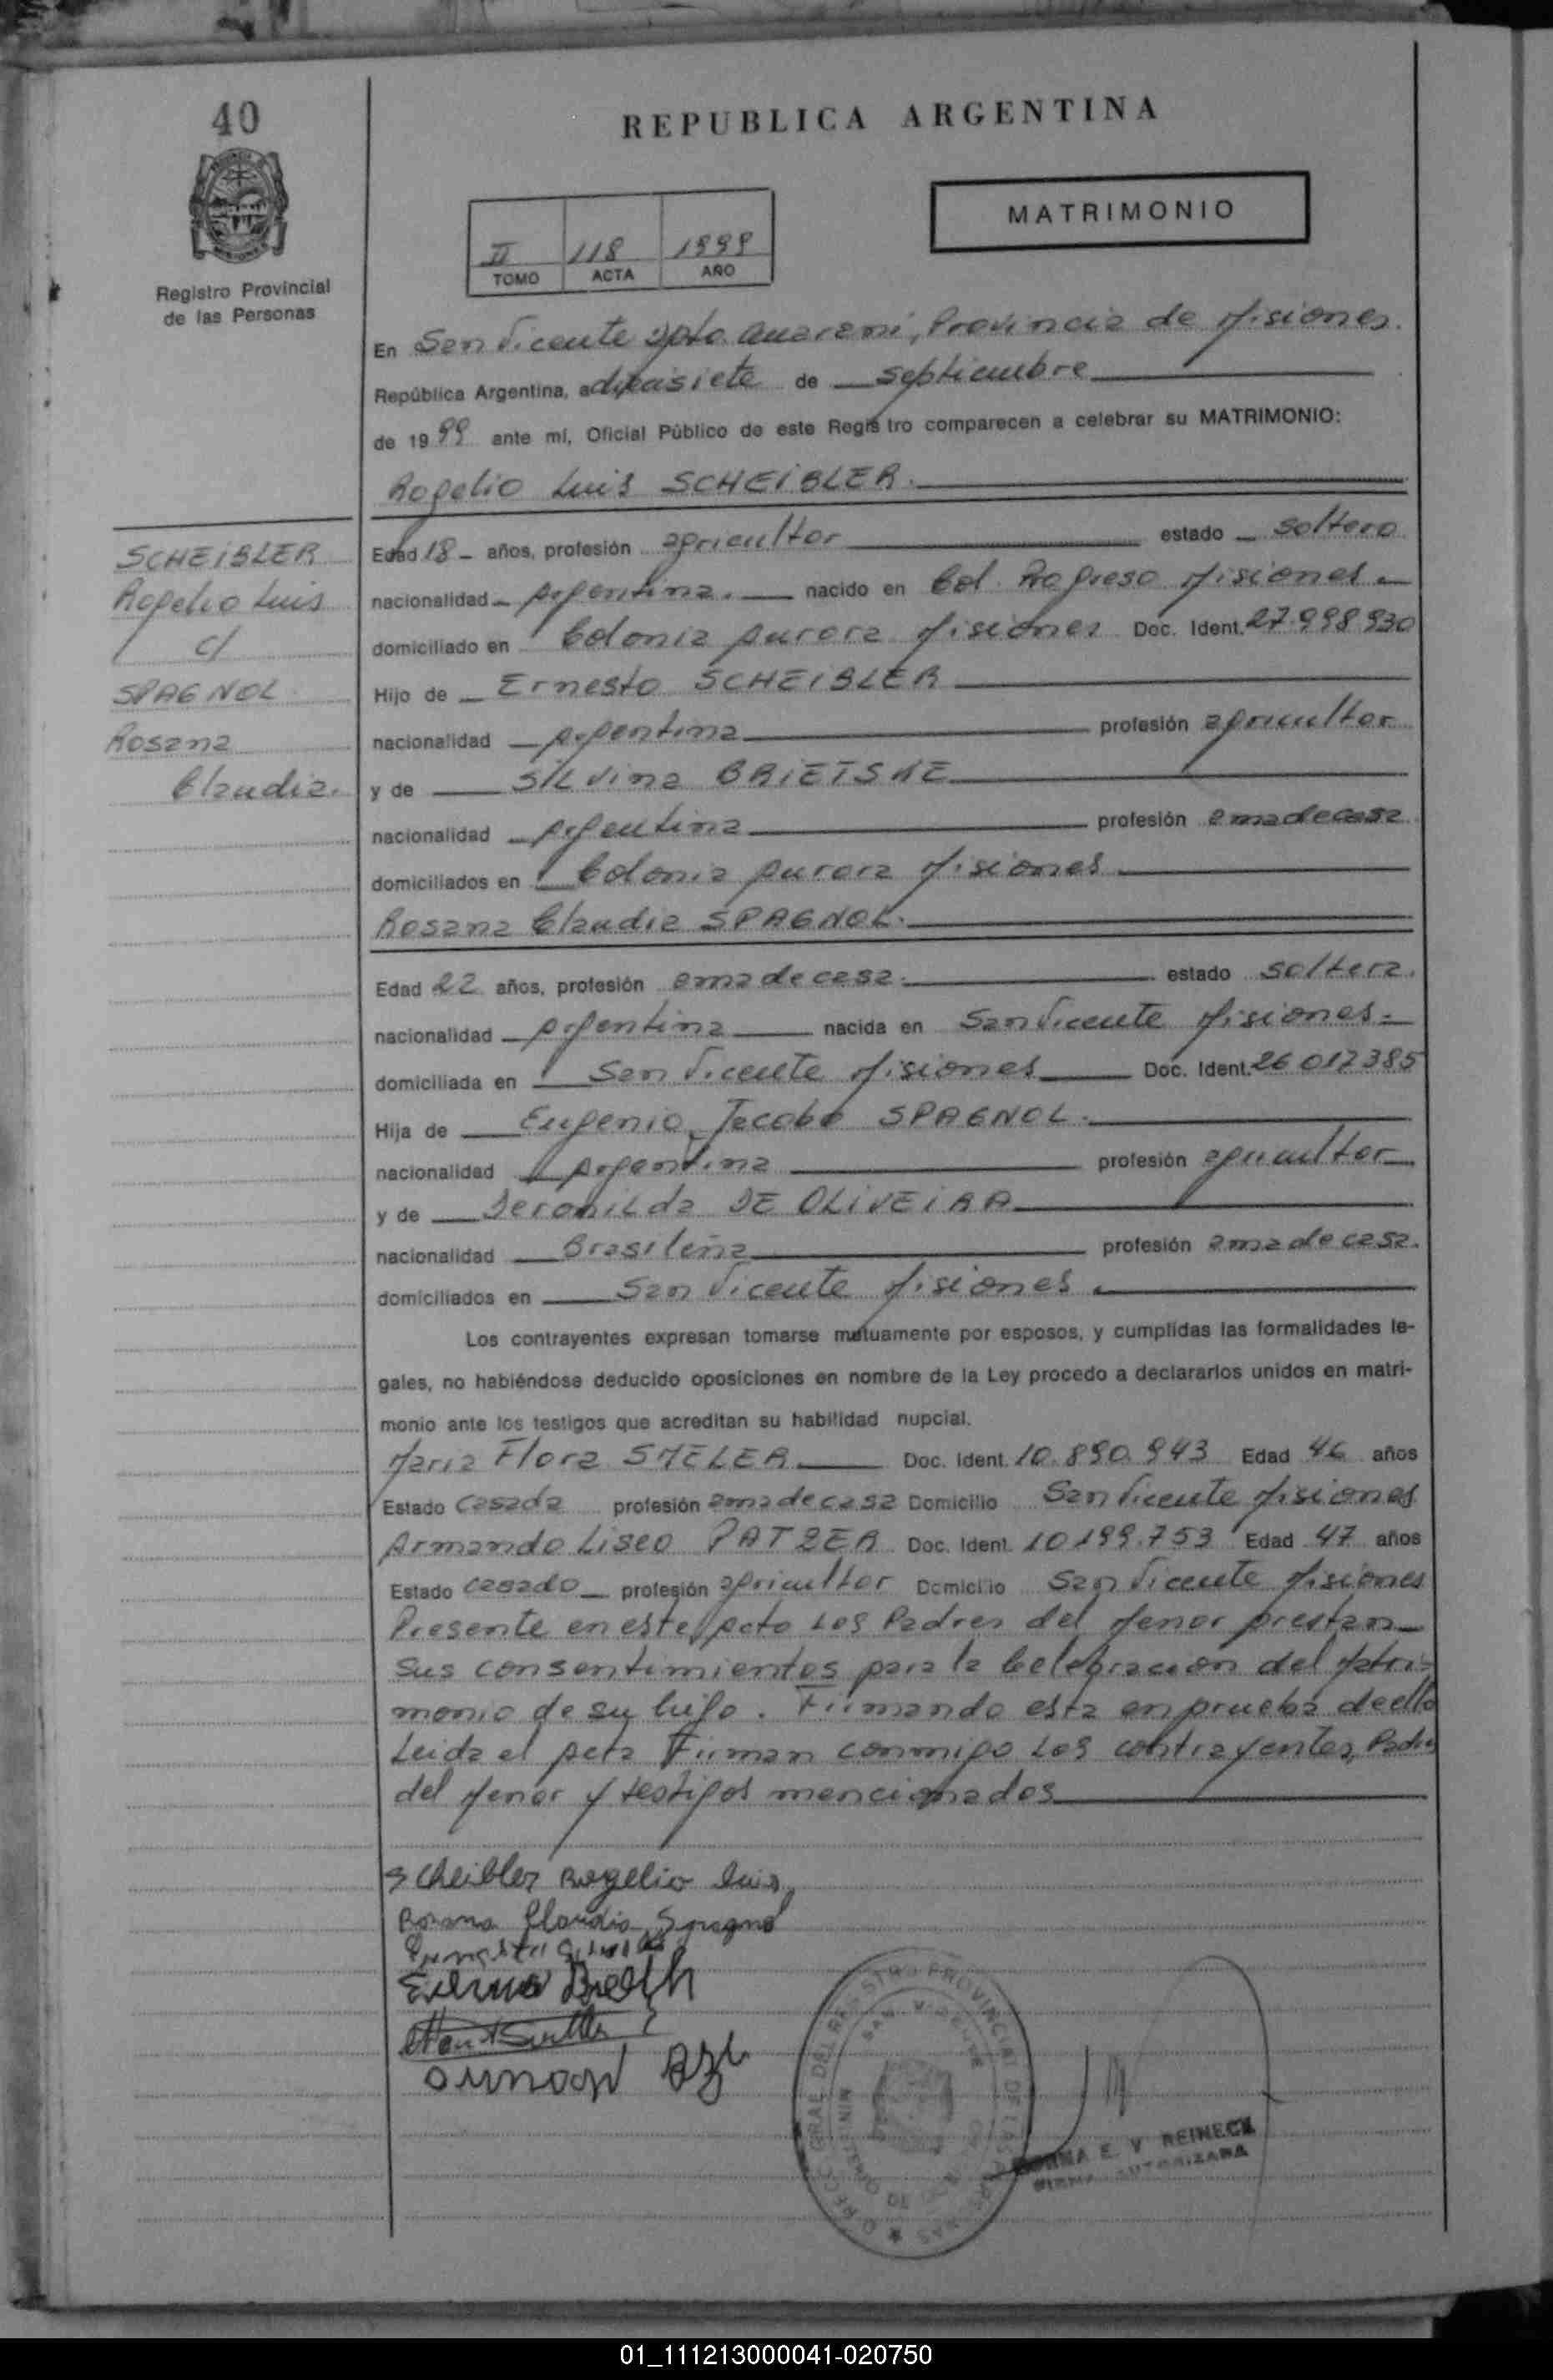 40
REPUBLICA ARGENTINA
MATRIMONIO
II 118 1999
TOMO ACTA AÑO
Registro Provincial
de las Personas
En San Vicente Dpto. Guarani, Provincia de Misiones.
República Argentina, a diecisiete de septiembre
de 1999 ante mí, Oficial Público de este Registro comparecen a celebrar su MATRIMONIO:
Rogelio Luis SCHEiBLER.
SCHEiBLER
Rogelio Luis
c/
SPAGNOL
Rosana
Claudia.
Edad 18 años, profesión agricultor estado soltero
nacionalidad Argentina. nacido en Col. Progreso Misiones
domiciliado en Colonia Aurora Misiones Doc. Ident. 27.998930
Hijo de Ernesto SCHEiBLER
nacionalidad Argentina profesión agricultor
y de SiLvina BRiETSKE
nacionalidad Argentina profesión ama de casa
domiciliados en Colonia Aurora Misiones
Rosana Claudia SPAGNOL.
Edad 22 años, profesión ama de casa. estado soltera.
nacionalidad Argentina nacida en San Vicente Misiones
domiciliada en San Vicente Misiones Doc. Ident. 26 012385
Hija de Eugenio Jacobo SPAGNOL.
nacionalidad Argentina profesión agricultor
y de DeroniLda DE OLiVEiRA
nacionalidad Brasileña profesión ama de casa.
domiciliados en San Vicente Misiones
Los contrayentes expresan tomarse mutuamente por esposos, y cumplidas las formalidades le-
gales, no habiéndose deducido oposiciones en nombre de la Ley procedo a declararlos unidos en matri-
monio ante los testigos que acreditan su habilidad nupcial.
Maria Flora SMELER Doc. Ident. 10.890.943 Edad 46 años
Estado casada profesión ama de casa Domicilio San Vicente Misiones
Armando Liseo PATZER Doc. Ident. 10199.753 Edad 47 años
Estado casado profesión agricultor Domicilio San Vicente Misiones
Presente en este Acto Los Padres del Menor prestan
sus consentimientos para la Celebracion del Matri-
monio de su hijo. Firmando esta en prueba de ello
Leida el Acta Firman conmigo Los contrayentes, Padres
del Menor y testigos mencionados
Scheibler Rogelio Luis
Rosana Claudia Spagnol
DIRECC. GRAL. DEL REGISTRO PROVINCIAL DE LAS PERSONAS
SAN VICENTE
E. V. REINECK
FIRMA AUTORIZADA
01_111213000041-020750